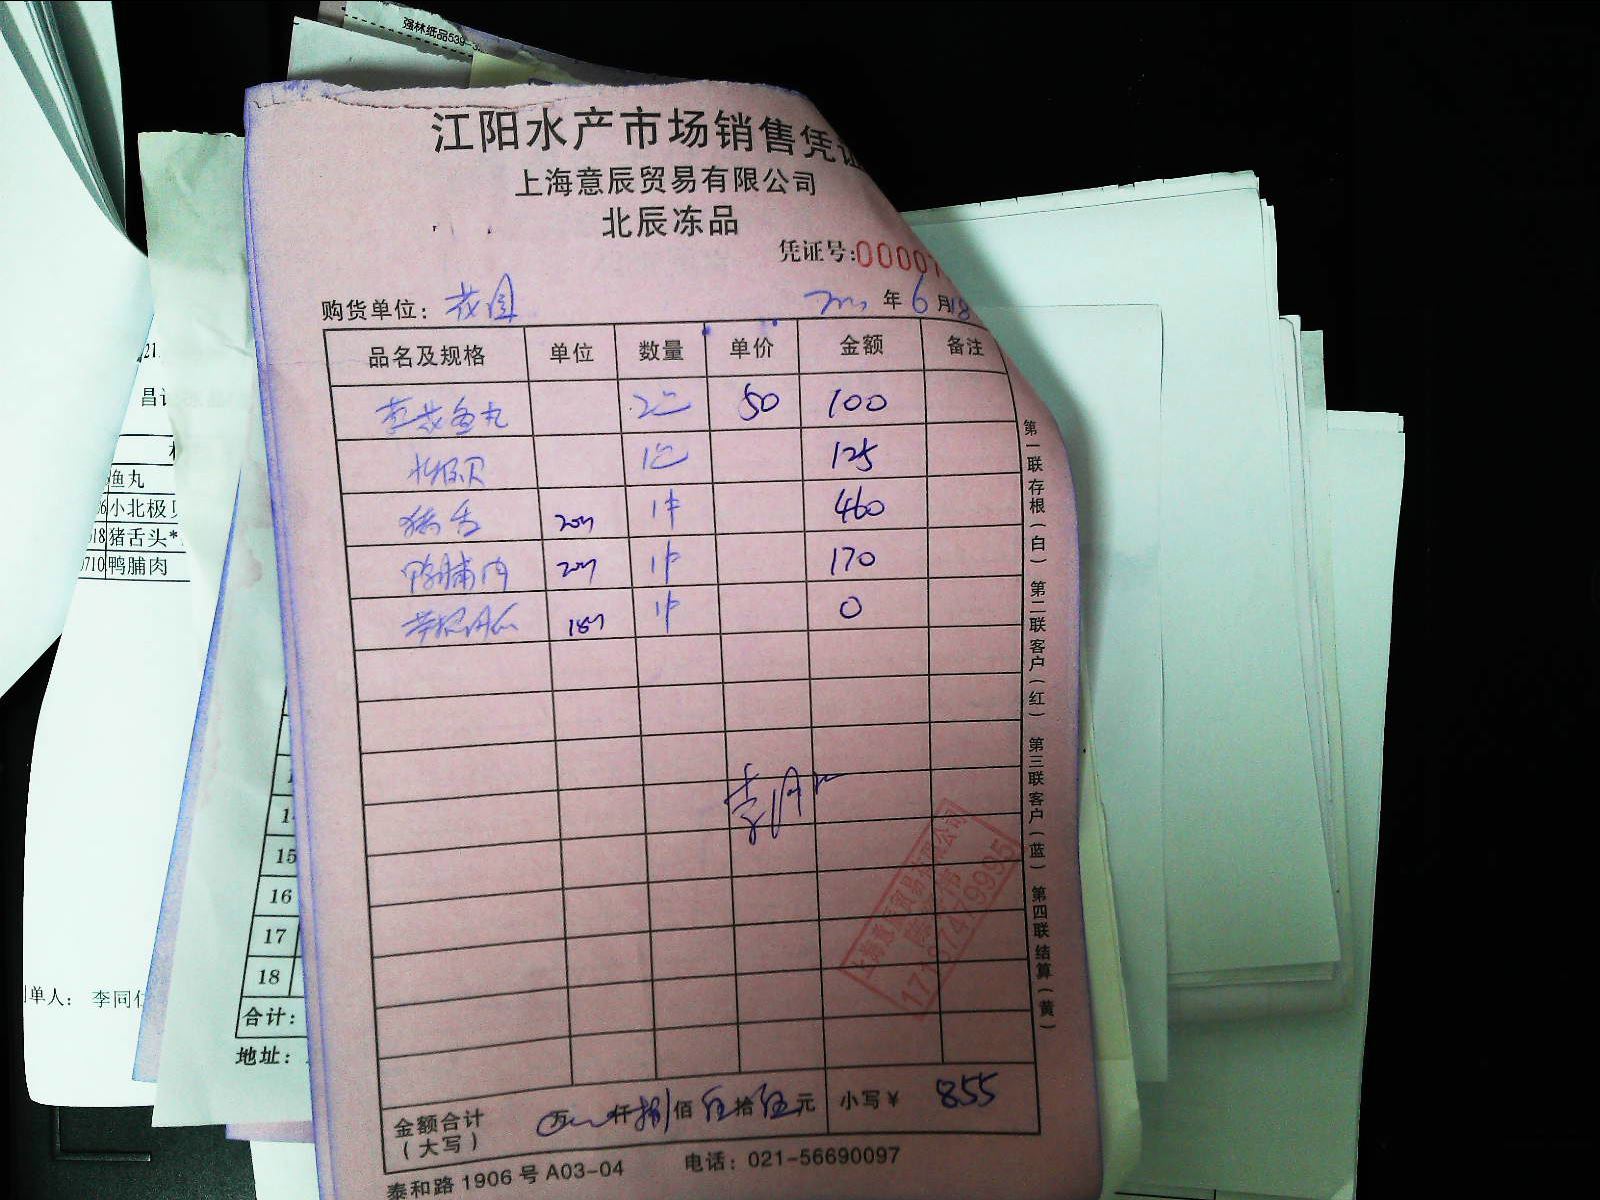 强林纸品539-3
江阳水产市场销售凭证
上海意辰贸易有限公司
北辰冻品
凭证号:0000
购货单位: 花园 年 6 月 18
品名及规格 单位 数量 单价 金额 备注
鱼丸 2 50 100
北极贝 1 125
猪舌 1件 460
鸭脯肉 1件 170
1件 0
第一联存根(白) 第二联客户(红) 第三联客户(蓝) 第四联结算(黄)
17187479995
金额合计 万 仟 捌 佰 伍 拾 伍 元 小写¥ 855
(大写)
泰和路1906号A03-04 电话: 021-56690097
21
昌
鱼丸
小北极贝
18 猪舌头*
0710 鸭脯肉
单人: 李同
15
16
17
18
合计:
地址: